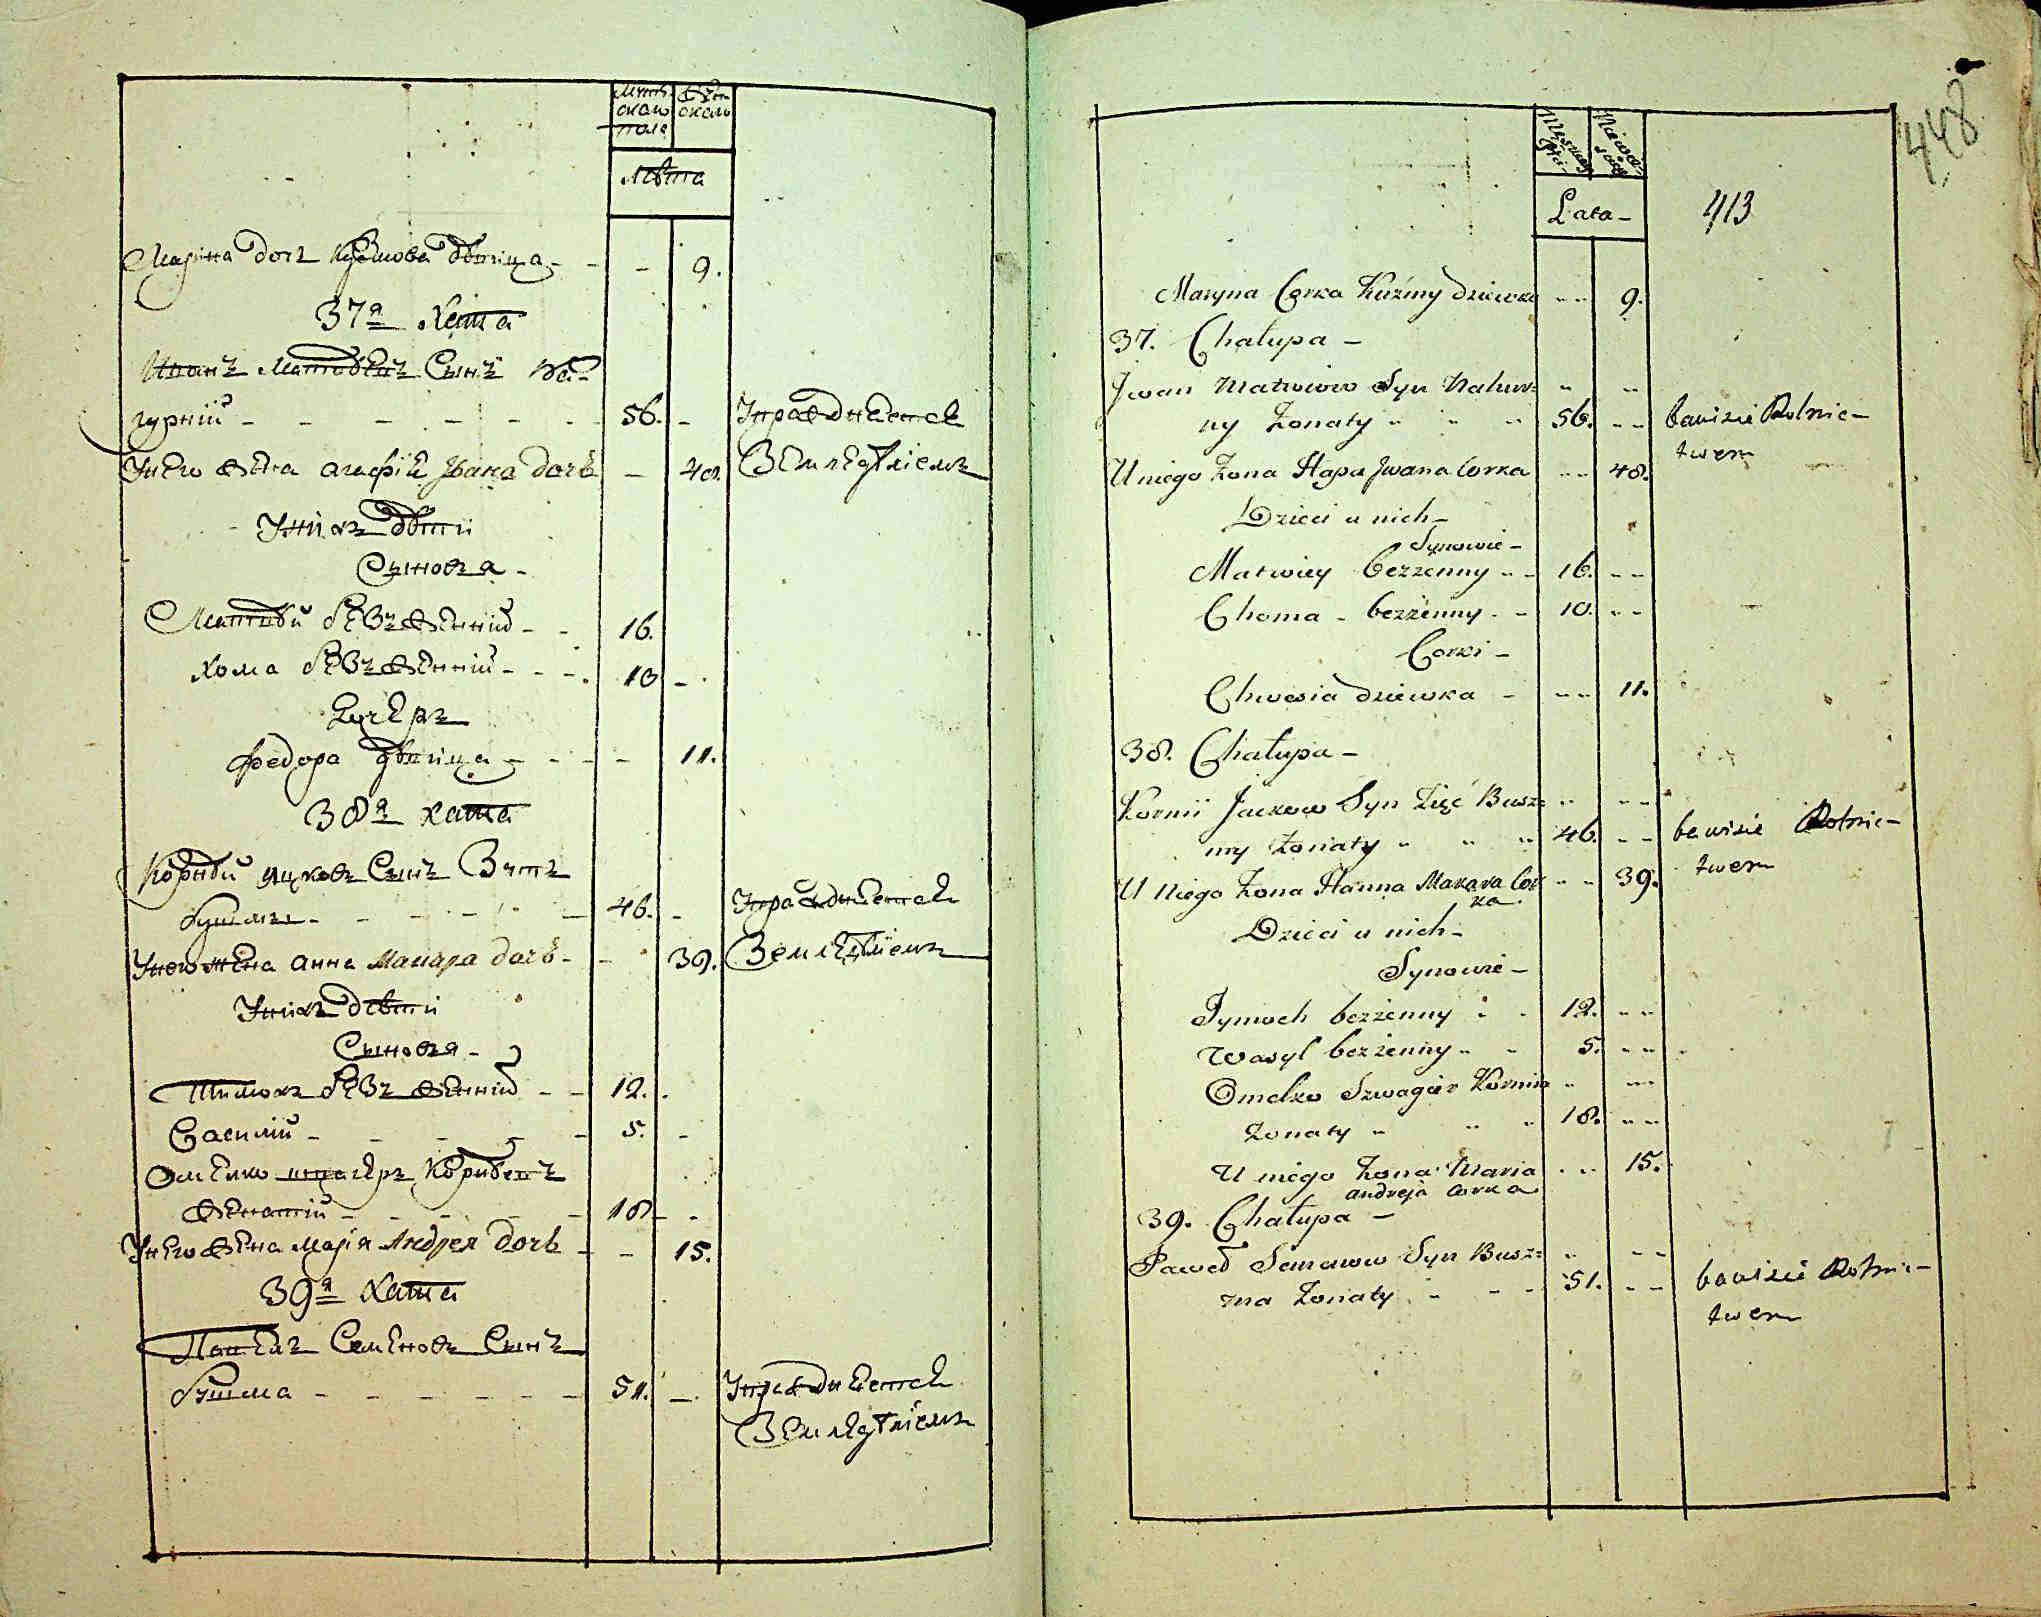 Мужь
ского
пола
Жен
ского
Лѣта
Марина дочь Кузмова дѣвица - - - 9.
37я Хата
Иванъ Матвѣевъ Сынъ На-
гурній - - - - - - - 56. - Упражняется
Унего жена Агафія Ивана дочь - 40. Земледѣліемъ
Унихъ дѣти
Сыновья -
Матвѣй безженній - - 16.
Хома безженній - - - 10 -
Дочерь
Федора дѣвица - - - - 11.
38я хата
Корнѣй Яцковъ Сынъ Зять
Бушмы - - - - - - 46. - Упражняется
Унего жена Анна Макара дочь - - 39. Земледѣліемъ
Унихъ дѣти
Сыновья -
Тимохъ безженній - - 12. -
Василій - - - - - 5. -
Омелко швагеръ Корнѣевъ
женатій - - - - - 18 - -
Унего жена Марія Андрея дочь - - 15.
39я Хата
Павелъ Семеновъ Сынъ
Бушма - - - - - - 51. - Упражняется
Земледѣліемъ
448
Lata -
413
Maryna Corka Kuźmy dziewka - - 9.
37. Chałupa -
Jwan Matwiow Syn Nahur=
ny Żonaty " " " 56. - - bawisie Rolnic-
twem
U niego Żona Hapa Jwana Corka - - 40.
Dzieci u nich -
Synowie -
Matwiey bezżenny - - 16. - -
Choma - bezżenny - - 10. - -
Corki -
Chwesia dziewka - - - 11.
38. Chałupa -
Kornii Jackow Syn Zięć Busz=
my Żonaty " " " 46. - - bawisie Rolnic-
twem
U Niego Żona Hanna Makara Cor
ka - - 39.
Dzieci u nich -
Synowie -
Tymoch bezżenny - - 12. - -
Wasyl bezżenny - - 5. - -
Omelko Szwagier Kornia
Żonaty " " " 18. - -
U niego Żona Maria - - 15.
Andreja Corka
39. Chałupa -
Paweł Semenow Syn Busz=
ma Żonaty - - - 51. - - bawisie Rolnic-
twem